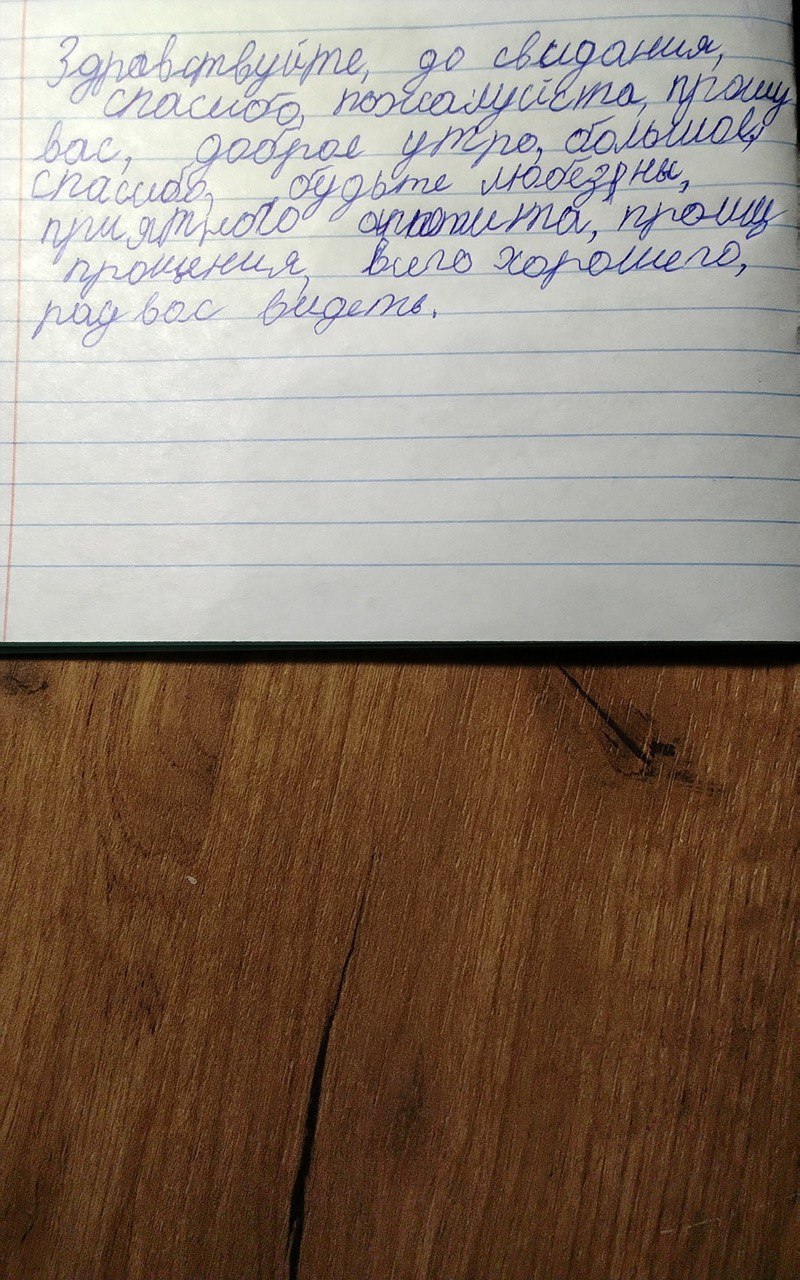 Здравствуйте, до свидания,
спасибо, пожалуйста, прошу
вас, доброе утро, большое
спасибо, будьте любезны,
приятного аппетита, прошу
прощения, всего хорошего,
рад вас видеть.